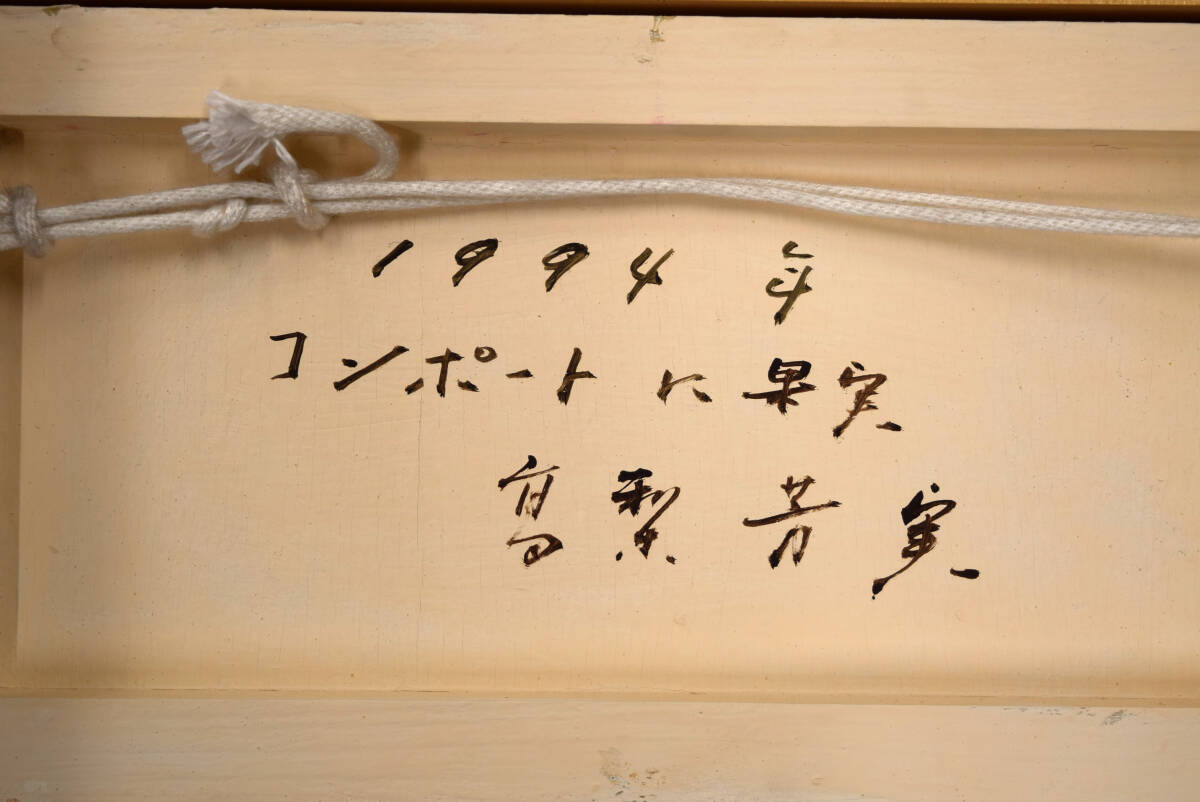 1994年
コンポートに果実
高梨芳実